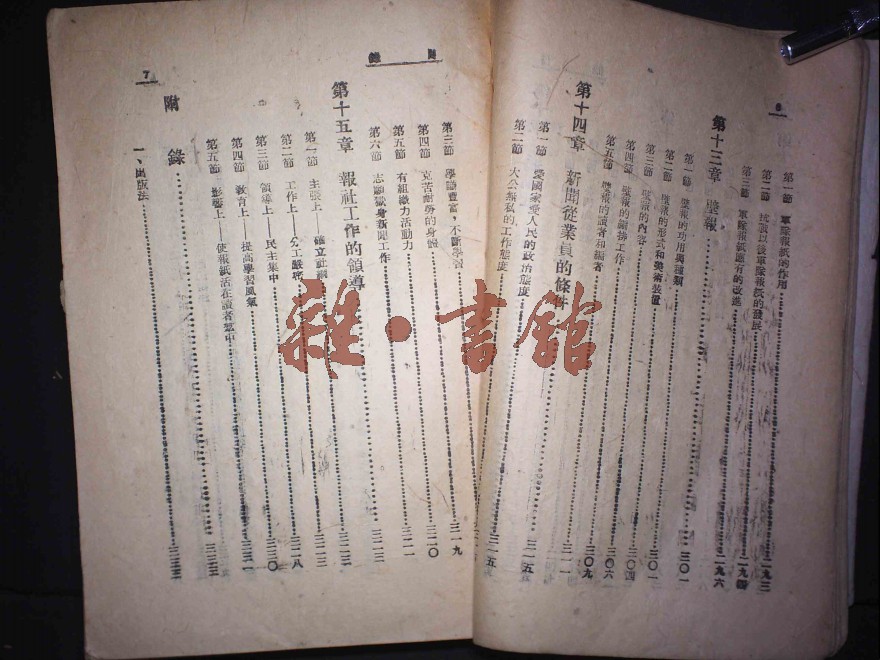 6
第一節　軍隊報紙的作用…………二九三
第二節　抗戰以後軍隊報紙的發展…………二九四
第三節　軍隊報紙應有的改進…………二九六
第十三章　壁報…………
第一節　壁報的功用與種類…………三〇一
第二節　壁報的形式和美術裝置…………三〇一
第三節　壁報的內容…………三〇四
第四節　壁報的編排工作…………三〇六
第五節　壁報的讀者和編者…………三〇九
第十四章　新聞從業員的條件…………三一一
第一節　愛國家愛人民的政治態度…………三一五
第二節　大公無私的工作態度…………三一五
目錄
第三節　學識豐富，不斷學習…………三一九
第四節　克苦耐勞的身體…………三二〇
第五節　有組織力活動力…………三二一
第六節　志願獻身新聞工作…………三二三
第十五章　報社工作的領導…………
第一節　主張上——確立社論
第二節　工作上——分工嚴密…………三二八
第三節　領導上——民主集中…………三三〇
第四節　教育上——提高學習風氣
第五節　影響上——使報紙活在讀者羣中
附錄…………
一、出版法…………
7
雜・書館